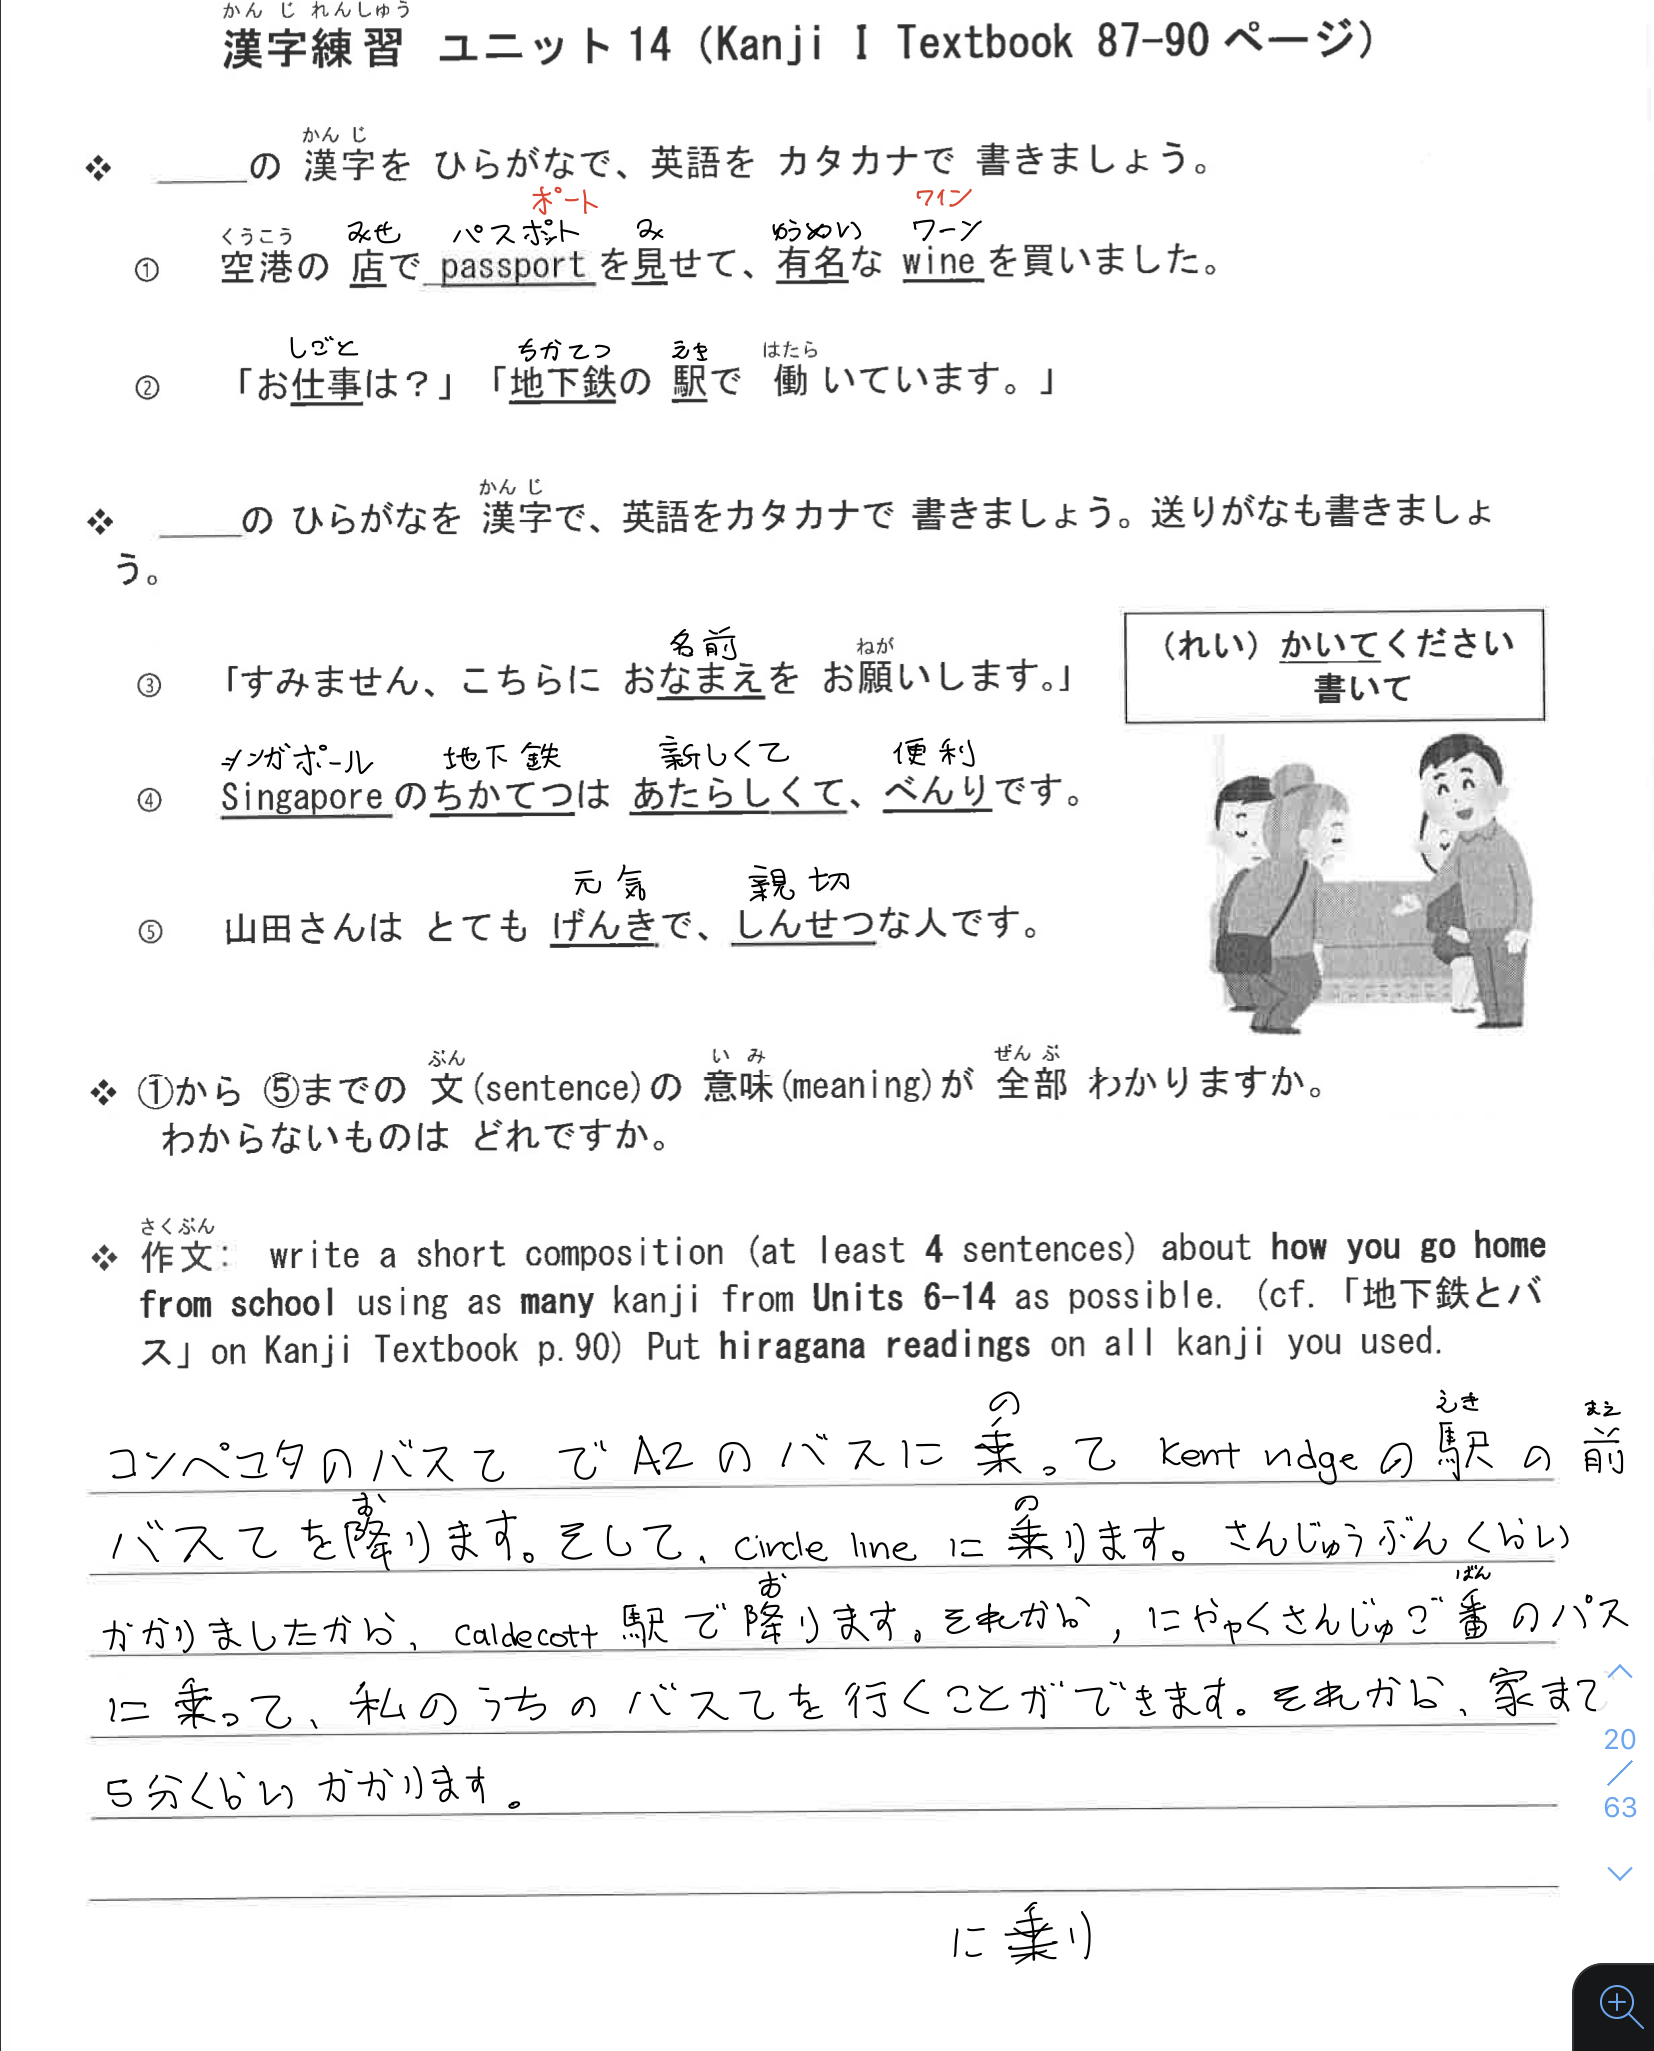 かん じ れんしゅう
漢字練習 ユニット 14 (Kanji I Textbook 87-90 ページ)
かん じ
❖ _____の 漢字を ひらがなで、英語を カタカナで 書きましょう。
ポート ワイン
くうこう みせ パスポット み ゆうめい ワーン
① 空港の 店で passport を見せて、有名な wine を買いました。
しごと ちかてつ えき はたら
② 「お仕事は？」「地下鉄の 駅で 働 いています。」
かん じ
❖ _____の ひらがなを 漢字で、英語をカタカナで 書きましょう。送りがなも書きましょ
う。
名前 ねが
③ 「すみません、こちらに おなまえを お願いします。」
(れい) かいてください
書いて
シンガポール 地下鉄 新しくて 便利
④ Singapore のちかてつは あたらしくて、べんりです。
元気 親切
⑤ 山田さんは とても げんきで、しんせつな人です。
ぶん い み ぜん ぶ
❖ ①から ⑤までの 文(sentence)の 意味(meaning)が 全部 わかりますか。
わからないものは どれですか。
さくぶん
❖ 作文: write a short composition (at least 4 sentences) about how you go home
from school using as many kanji from Units 6-14 as possible. (cf.「地下鉄とバ
ス」on Kanji Textbook p.90) Put hiragana readings on all kanji you used.
の えき まえ
コンペユタのバスて で A2 のバスに 乗って Kent ridge の駅の前
お の
バスてを降ります。そして、circle line に乗ります。さんじゅうぶんくらい
お ばん
かかりましたから、caldecott 駅で降ります。それから, にゃくさんじゅご番のバス
に乗って、私のうちのバスてを行くことができます。それから、家まで
5分くらい かかります。
に乗り
20
/
63